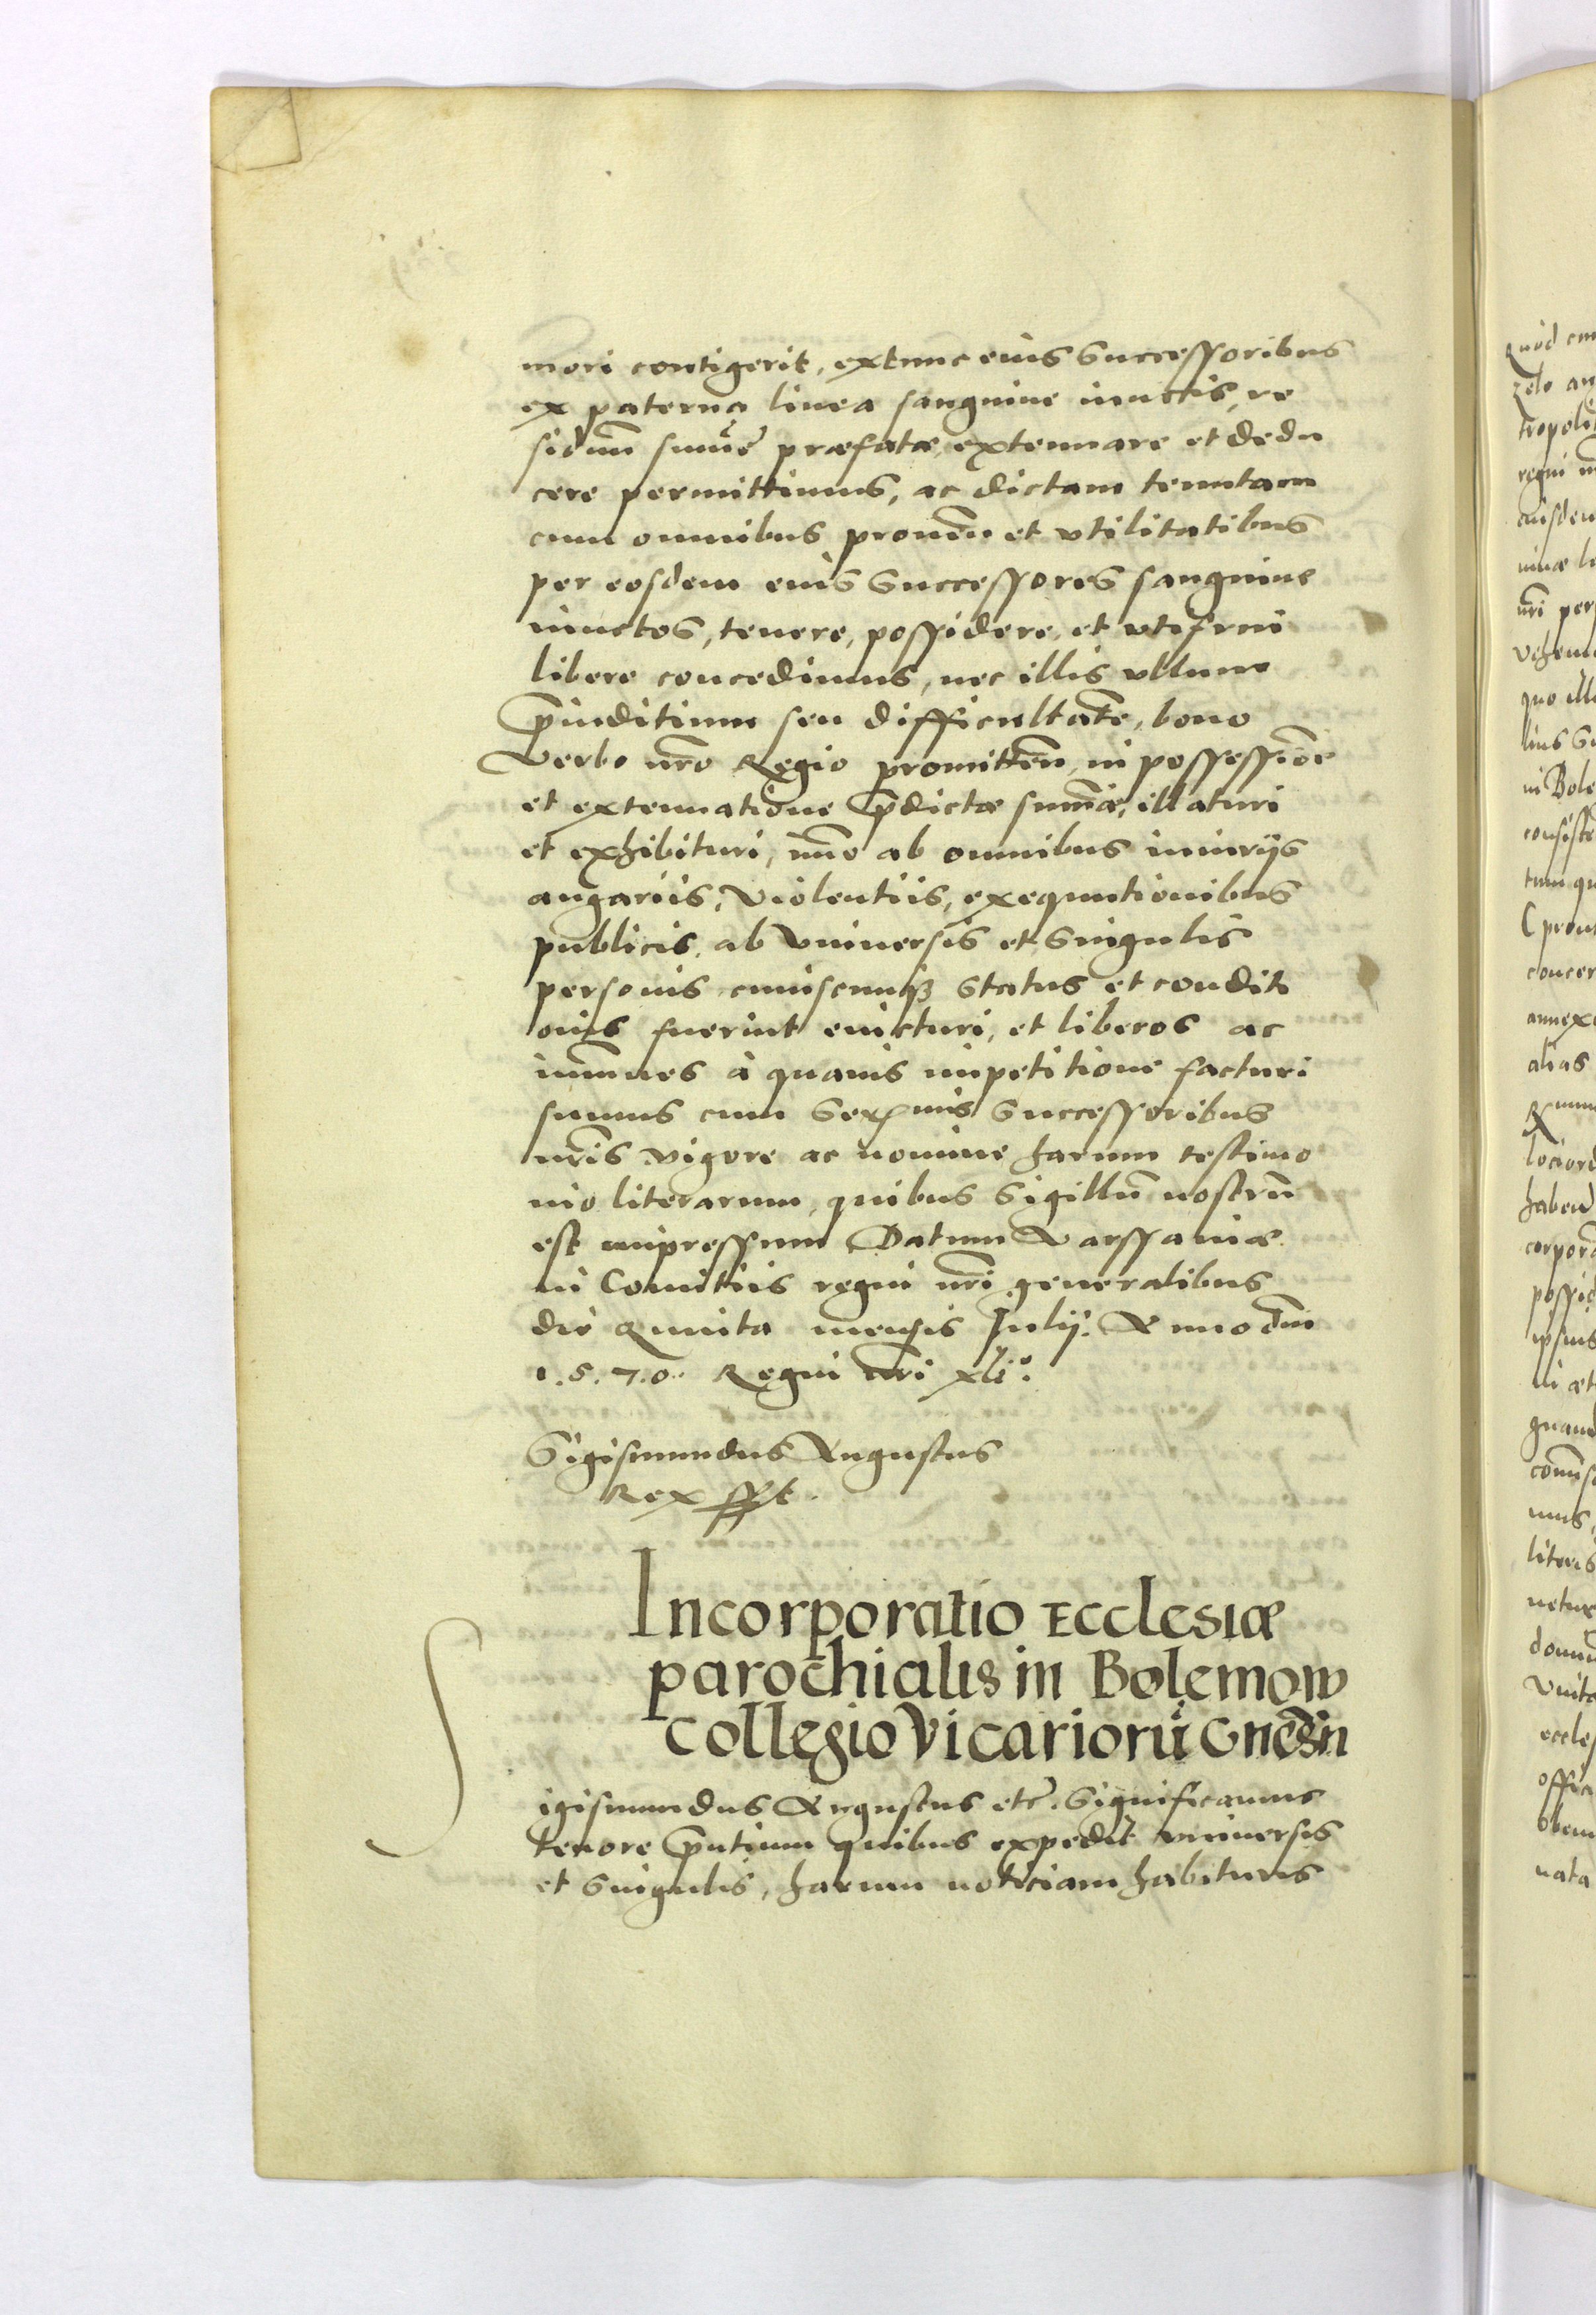 mori contigerit, extunc eius Successoribus
ex paterna linea sanguine iunctis, re
siduũ sum̃e præfatæ, extenuare et dedu
cere permittimus, ac dictam tenutam
cum omnibus prouen̄ et vtilitatibus
per eosdem eius Successores sanguine
iunctos, tenere, possidere, et vtifrui
libere concedimus, nec illis vllum
p̄iuditium seu difficultatē, bono
Verbo nr̄o Regio promitten̄, in possessiōe
et extenuatione p̄dictæ summæ, illaturi
et exhibituri, imo ab omnibus iniurijs
angariis, Violentiis, exequutionibus
publicis, ab Vniuersis et Singulis
personis cuiuscunqꝫ Status et conditi
onis fuerint euicturi, et liberos ac
immunes à quauis impetitione facturi
sumus cum Serᵐⁱˢ Successoribus
nr̄is vigore ac nomine harum testimo
nio literarum, quibus Sigillū nostrū
est impressum Datum Varssauiæ
in Comitiis regni nr̄i generalibus
die Quinta mensis Julij. Anno dn̄i
1.5.7.0. Regni nr̄i xliº.
Sigismundus Augustus
Rex sst.
Incorporatio Ecclesiæ
parochialis in Bolemow
Collegio Vicariorū Gnesn̄
Sigismundus Augustus etc̄. Significamus
tenore p̄ntium quibus expedit vniuersis
et Singulis, harum noticiam habituris
quod
zelo
tropoli
regni
eiusdem
nr̄i
quo
in Bole
tum
alias
haben
corpor
ipsius
literis
eccles
nata